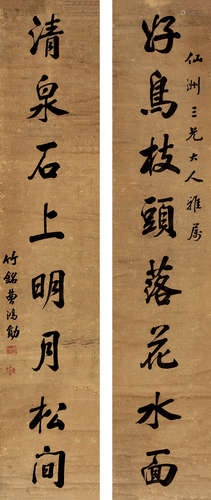 仙洲三兄大人雅属
好鳥枝頭落花水面
清泉石上明月松间
竹銘曹鴻勛